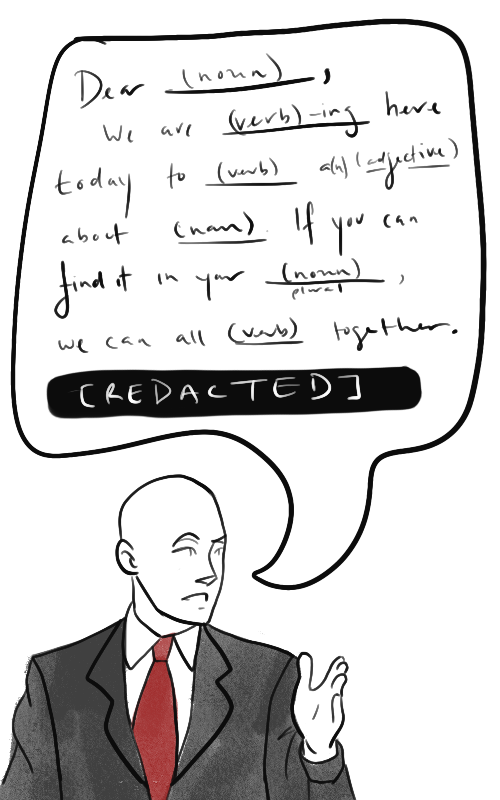 Dear (noun),
We are (verb)-ing here
today to (verb) a(n) (adjective)
about (noun). If you can
find it in your (noun),
plural
we can all (verb) together.
[REDACTED]